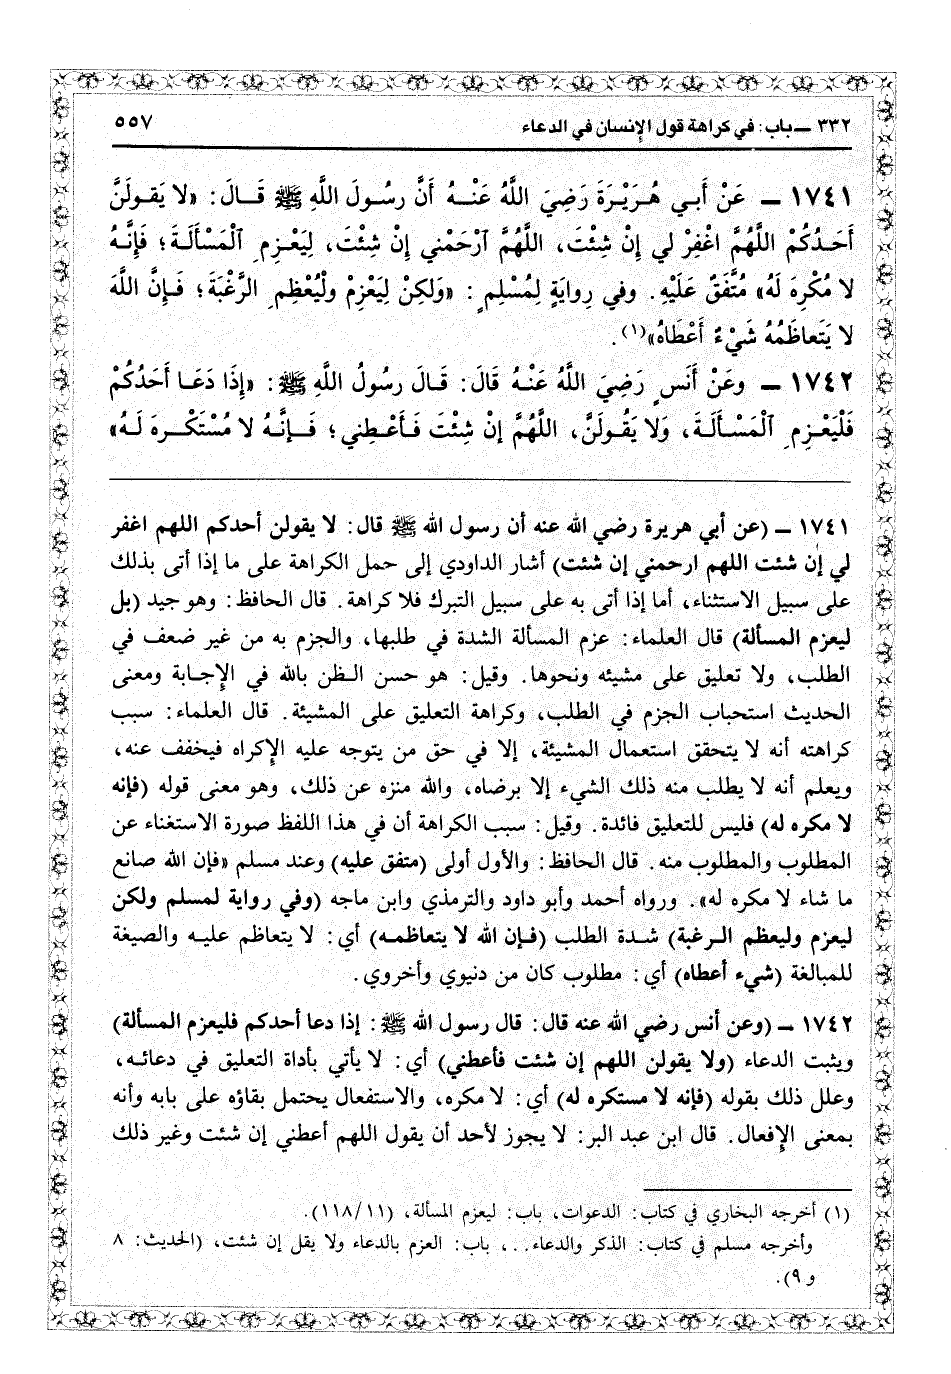 ٣٣٢ ـ باب: في كراهة قول الإنسان في الدعاء ٥٥٧
١٧٤١ ـ عَنْ أَبي هُرَيْرَةَ رَضِيَ اللَّهُ عَنْهُ أَنَّ رسُولَ اللَّهِ ﷺ قَالَ: «لا يَقولَنَّ
أَحَدُكُمْ اللَّهُمَّ اغْفِرْ لي إنْ شِئْتَ، اللَّهُمَّ آرْحَمْني إنْ شِئْتَ، لِيَعْزِمِ الْمَسْأَلَةَ؛ فَإِنَّهُ
لا مُكْرِهَ لَهُ» مُتَّفَقٌ عَلَيْهِ. وفي رِوايَةٍ لمُسْلِمٍ: «وَلكِنْ لِيَعْزِمْ ولْيُعْظِمِ الرَّغْبَةَ؛ فَإنَّ اللَّهَ
لا يَتَعاظَمُهُ شَيْءٌ أَعْطَاهُ»(١).
١٧٤٢ ـ وعَنْ أَنَسٍ رَضِيَ اللَّهُ عَنْهُ قَالَ: قَالَ رسُولُ اللَّهِ ﷺ: «إِذَا دَعَا أَحَدُكُمْ
فَلْيَعْزِمِ الْمَسْأَلَةَ، وَلا يَقُولَنَّ، اللَّهُمَّ إنْ شِئْتَ فَأَعْطِني؛ فَإِنَّهُ لا مُسْتَكْرِهَ لَهُ»
١٧٤١ ـ (عن أبي هريرة رضي الله عنه أن رسول الله ﷺ قال: لا يقولن أحدكم اللهم اغفر
لي إن شئت اللهم ارحمني إن شئت) أشار الداودي إلى حمل الكراهة على ما إذا أتى بذلك
على سبيل الاستثناء، أما إذا أتى به على سبيل التبرك فلا كراهة. قال الحافظ: وهو جيد (بل
ليعزم المسألة) قال العلماء: عزم المسألة الشدة في طلبها، والجزم به من غير ضعف في
الطلب، ولا تعليق على مشيئه ونحوها. وقيل: هو حسن الظن بالله في الإجابة ومعنى
الحديث استحباب الجزم في الطلب، وكراهة التعليق على المشيئة. قال العلماء: سبب
كراهته أنه لا يتحقق استعمال المشيئة، إلا في حق من يتوجه عليه الإكراه فيخفف عنه،
ويعلم أنه لا يطلب منه ذلك الشيء إلا برضاه، والله منزه عن ذلك، وهو معنى قوله (فإنه
لا مكره له) فليس للتعليق فائدة. وقيل: سبب الكراهة أن في هذا اللفظ صورة الاستغناء عن
المطلوب والمطلوب منه. قال الحافظ: والأول أولى (متفق عليه) وعند مسلم «فإن الله صانع
ما شاء لا مكره له». ورواه أحمد وأبو داود والترمذي وابن ماجه (وفي رواية لمسلم ولكن
ليعزم وليعظم الرغبة) شدة الطلب (فإن الله لا يتعاظمه) أي: لا يتعاظم عليه والصيغة
للمبالغة (شيء أعطاه) أي: مطلوب كان من دنيوي وأخروي.
١٧٤٢ ـ (وعن أنس رضي الله عنه قال: قال رسول الله ﷺ: إذا دعا أحدكم فليعزم المسألة)
ويثبت الدعاء (ولا يقولن اللهم إن شئت فأعطني) أي: لا يأتي بأداة التعليق في دعائه،
وعلل ذلك بقوله (فإنه لا مستكره له) أي: لا مكره، والاستفعال يحتمل بقاؤه على بابه وأنه
بمعنى الإفعال. قال ابن عبد البر: لا يجوز لأحد أن يقول اللهم أعطني إن شئت وغير ذلك
(١) أخرجه البخاري في كتاب: الدعوات، باب: ليعزم المسألة، (١١٨/١١).
وأخرجه مسلم في كتاب: الذكر والدعاء...، باب: العزم بالدعاء ولا يقل إن شئت، (الحديث: ٨
و ٩).